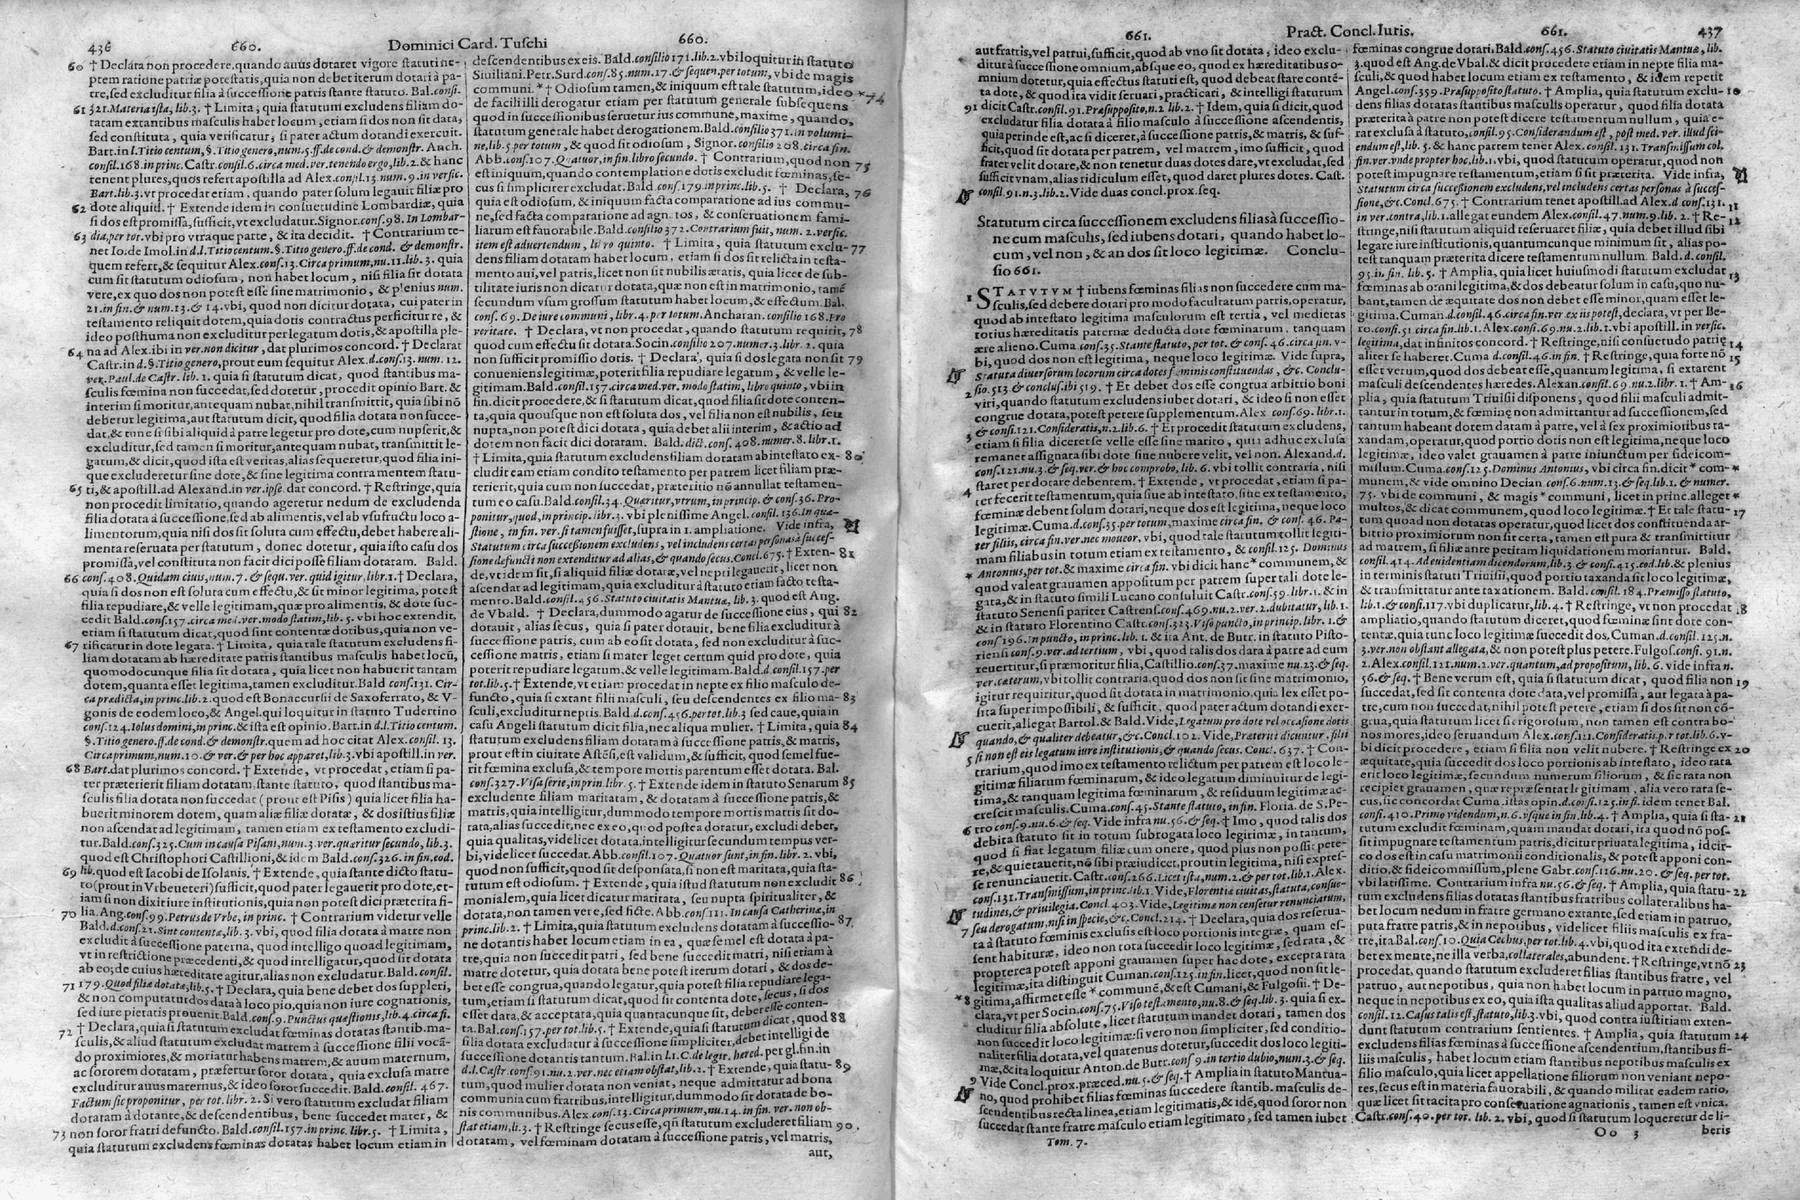 436 660. Dominici Card. Tuschi 660.
60 † Declara non procedere, quando auus dotaret vigore statuti ne-
ptem ratione patriæ potestatis, quia non debet iterum dotari à pa-
tre, sed excluditur filia à successione patris stante statuto. Bal. consi.
61 321. Materia ista, lib. 3. † Limita, quia statutum excludens filiam do-
tatam extantibus masculis habet locum, etiam si dos non sit data,
sed constituta, quia verificatur, si pater actum dotandi exercuit.
Bart. in l. Titio centum, §. Titio genero, num. 5. ff. de cond. & demonstr. Anch.
consil. 168. in princ. Castr. consil. 6. circa med. ver. tenendo ergo, lib. 2. & hanc
tenent plures, quos refert apostilla ad Alex. consil. 13 num. 9. in versic.
Bart. lib. 3. vt procedat etiam, quando pater solum legauit filiæ pro
62 dote aliquid. † Extende idem in consuetudine Lombardiæ, quia
si dos est promissa, sufficit, vt excludatur. Signor. cons. 98. In Lombar-
63 dia, per tot. vbi pro vtraque parte, & ita decidit. † Contrarium te-
net Io. de Imol. in d. l. Titio centum, §. Titio genero. ff. de cond. & demonstr.
quem refert, & sequitur Alex. cons. 13. Circa primum, nu. 11. lib. 3. quia
cum sit statutum odiosum, non habet locum, nisi filia sit dotata
vere, ex quo dos non potest esse sine matrimonio, & plenius num.
21. in fin. & num. 13. & 14. vbi, quod non dicitur dotata, cui pater in
testamento reliquit dotem, quia dotis contractus perficitur re, &
ideo posthuma non excluditur per legatum dotis, & apostilla ple-
64 na ad Alex. ibi in ver. non dicitur, dat plurimos concord. † Declarat
Castr. in d. §. Titio genero, prout eum sequitur Alex. d. cons. 13. num. 12.
ver. Paul. de Castr. lib. 1. quia si statutum dicat, quod stantibus ma-
sculis fœmina non succedat, sed dotetur, procedit opinio Bart. &
interim si moritur, antequam nubat, nihil transmittit, quia sibi nō
debetur legitima, aut statutum dicit, quod filia dotata non succe-
dat, & tunc si sibi aliquid à patre legetur pro dote, cum nupserit, &
excluditur, sed tamen si moritur, antequam nubat, transmittit le-
gatum, & dicit, quod ista est veritas, alias sequeretur, quod filia ini-
que excluderetur sine dote, & sine legitima contra mentem statu-
65 ti, & apostill. ad Alexand. in ver. ipse. dat concord. † Restringe, quia
non procedit limitatio, quando ageretur nedum de excludenda
filia dotata à successione, sed ab alimentis, vel ab vsufructu loco a-
limentorum, quia nisi dos sit soluta cum effectu, debet habere ali-
menta reseruata per statutum, donec dotetur, quia isto casu dos
promissa, vel constituta non facit dici posse filiam dotatam. Bald.
66 cons. 408. Quidam ciuis, num. 7. & sequ. ver. quid igitur, libr. 1. † Declara,
quia si dos non est soluta cum effectu, & sit minor legitima, potest
filia repudiare, & velle legitimam, quæ pro alimentis, & dote suc-
cedit Bald. cons. 157. circa med. ver. modo statim, lib. 5. vbi hoc extendit,
etiam si statutum dicat, quod sint contentæ dotibus, quia non ve-
67 rificatur in dote legata. † Limita, quia tale statutum excludens fi-
liam dotatam ab hæreditate patris stantibus masculis habet locū,
quomodocunque filia sit dotata, quia licet non habuerit tantam
dotem, quanta esset legitima, tamen excluditur. Bald cons. 131. Cir-
ca prædicta, in princ. lib. 2. quod est Bonacursii de Saxoferrato, & V-
gonis de eodem loco, & Angel. qui loquitur in statuto Tudertino
cons. 124. Iolus domini, in princ. & ista est opinio. Bart. in d. l. Titio centum.
§. Titio genero. ff. de cond. & demonstr. quem ad hoc citat Alex. consil. 13.
Circa primum, num. 10. & ver. & per hoc apparet, lib. 3. vbi apostill. in ver.
68 Bart. dat plurimos concord. † Extende, vt procedat, etiam si pa-
ter præterierit filiam dotatam, stante statuto, quod stantibus ma-
sculis filia dotata non succedat (prout est Pisis) quia licet filia ha-
buerit minorem dotem, quam aliæ filiæ dotatæ, & dos istius filiæ
non ascendat ad legitimam, tamen etiam ex testamento excludi-
tur. Bald. cons. 325. Cum in causa Pisani, num. 3. ver. quæritur secundo, lib. 3.
quod est Christophori Castillioni, & idem Bald. cons. 326. in fin. eod.
69 lib. quod est Iacobi de Isolanis. † Extende, quia stante dicto statu-
to (prout in Vrbeueteri) sufficit, quod pater legauerit pro dote, et-
iam si non dixit iure institutionis, quia non potest dici præterita fi-
70 lia. Ang. cons. 99. Petrus de Vrbe, in princ. † Contrarium videtur velle
Bald. d. cons. 21. Sint contentæ, lib. 3. vbi, quod filia dotata à matre non
excludit à successione paterna, quod intelligo quoad legitimam,
vt in restrictione præcedenti, & quod intelligatur, quod sit dotata
ab eo, de cuius hæreditate agitur, alias non excludatur. Bald. consil.
71 179. Quod filia dotata, lib. 5. † Declara, quia bene debet dos suppleri,
& non computatur dos data à loco pio, quia non iure cognationis,
sed iure pietatis prouenit. Bald. cons. 9. Punctus quæstionis, lib. 4. circa fi.
72 † Declara, quia si statutum excludat fœminas dotatas stantib. ma-
sculis, & aliud statutum excludat matrem à successione filii vocā-
do proximiores, & moriatur habens matrem, & auum maternum,
ac sororem dotatam, præfertur soror dotata, quia exclusa matre
excluditur auus maternus, & ideo soror succedit. Bald. consil. 467.
Factum sic proponitur, per tot. libr. 2. Si vero statutum excludat filiam
dotatam à dotante, & descendentibus, bene succedet mater, &
73 non soror fratri defuncto. Bald. cons. 157. in princ. libr. 5. † Limita,
quia statutum excludens fœminas dotatas habet locum etiam in
descendentibus ex eis. Bald. consilio 171. lib. 2. vbi loquitur in statuto
Siuiliani. Petr. Surd. cons. 85. num. 17. & sequen. per totum, vbi de magis
communi. * † Odiosum tamen, & iniquum est tale statutum, ideo * 74
de facili illi derogatur etiam per statutum generale subsequens
quod in successionibus seruetur ius commune, maxime, quando,
statutum generale habet derogationem. Bald. consilio 371. in volumi-
ne, lib. 5 per totum, & quod sit odiosum, Signor. consilio 208. circa fin.
Abb. cons. 107. Quatuor, in fin. libro secundo. † Contrarium, quod non 75
est iniquum, quando contemplatione dotis excludit fœminas, se-
cus si simpliciter excludat. Bald cons. 179. in princ. lib. 5. † Declara, 76
quia est odiosum, & iniquum facta comparatione ad ius commu-
ne, sed facta comparatione ad agnatos, & conseruationem fami-
liarum est fauorabile. Bald. consilio 372. Contrarium fuit, num. 2. versic.
item est aduertendum, libro quinto. † Limita, quia statutum exclu- 77
dens filiam dotatam habet locum, etiam si dos sit relicta in testa-
mento aui, vel patris, licet non sit nubilis ætatis, quia licet de sub-
tilitate iuris non dicatur dotata, quæ non est in matrimonio, tamē
secundum vsum grossum statutum habet locum, & effectum. Bal.
cons. 69. De iure communi, libr. 4. per totum. Ancharan. consilio 168. Pro
veritate. † Declara, vt non procedat, quando statutum requirit, 78
quod cum effectu sit dotata. Socin. consilio 207. numer. 3. libr. 2. quia
non sufficit promissio dotis. † Declara, quia si dos legata non sit 79
conueniens legitimæ, poterit filia repudiare legatum, & velle le-
gitimam. Bald. consil. 157. circa med. ver. modo statim, libro quinto, vbi in
fin. dicit procedere, & si statutum dicat, quod filia sit dote conten-
ta, quia quousque non est soluta dos, vel filia non est nubilis, seu
nupta, non potest dici dotata, quia debet alii interim, & actio ad
dotem non facit dici dotatam. Bald. dict. cons. 408. numer. 8. libr. 1.
† Limita, quia statutum excludens filiam dotatam ab intestato ex- 80
cludit eam etiam condito testamento per patrem licet filiam præ-
terierit, quia cum non succedat, præteritio nō annullat testamen-
tum eo casu. Bald. consil. 34. Quæritur, vtrum, in princip. & cons. 36. Pro-
ponitur, quod, in princip. libr. 1. vbi plenissime Angel. consil. 136. In quæ-
stione, in fin. ver. si tamen fuisset, supra in 1. ampliatione. Vide infra,
Statutum circa successionem excludens, vel includens certas personas à succes-
sione defuncti non extenditur ad alias, & quando secus. Concl. 675. † Exten- 81
de, vt idem sit, si aliquid filiæ dotatæ, vel nepti legauerit, licet non
ascendat ad legitimam, quia excluditur à statuto etiam facto testa-
mento. Bald. consil. 456. Statuto ciuitatis Mantuæ, lib. 3. quod est Ang.
de Vbald. † Declara, dummodo agatur de successione eius, qui 82
dotauit, alias secus, quia si pater dotauit, bene filia excluditur à
successione patris, cum ab eo sit dotata, sed non excluditur à suc-
cessione matris, etiam si mater leget certum quid pro dote, quia
poterit repudiare legatum, & velle legitimam. Bald. d. consil. 157. per
tot. lib. 5. † Extende, vt etiam procedat in nepte ex filio masculo de-
functo, quia si extant filii masculi, seu descendentes ex filio ma- 83
sculi, excluditur neptis. Bald. d. cons. 456. per tot. lib. 3 sed caue, quia in
casu Angeli statutum dicit filia, nec aliqua mulier. † Limita, quia 84
statutum excludens filiam dotatam à successione patris, & matris,
prout est in ciuitate Astēsi, est validum, & sufficit, quod semel fue-
rit fœmina exclusa, & tempore mortis parentum esset dotata. Bal.
cons. 327. Visa serie, in prin. libr. 5. † Extende idem in statuto Senarum 85
excludente filiam maritatam, & dotatam à successione patris, &
matris, quia intelligitur, dummodo tempore mortis matris sit do-
tata, alias succedit, nec ex eo, quod postea dotatur, excludi debet,
quia qualitas, videlicet dotata, intelligitur secundum tempus ver-
bi, videlicet succedat. Abb. consil. 107. Quatuor sunt, in fin. libr. 2. vbi,
quod non sufficit, quod sit desponsata, si non est maritata, quia sta-
tutum est odiosum. † Extende, quia istud statutum non excludit 86
monialem, quia licet dicatur maritata, seu nupta spiritualiter, &
dotata, non tamen vere, sed ficte. Abb. cons. 111. In causa Catherinæ, in
princ. lib. 2. † Limita, quia statutum excludens dotatam à successio- 87
ne dotantis habet locum etiam in ea, quæ semel est dotata à pa-
tre, quia non succedit patri, sed bene succedit matri, nisi etiam à
matre dotetur, quia dotata bene potest iterum dotari, & dos de-
betur ei, quando legatur, quia potest filia repudiare lega-
tum, etiam si statutum dicat, quod sit contenta dote, secus, si dos
esset data, & acceptata, quia quantacunque sit, debet esse conten-
ta. Bal. cons. 157. per tot. lib. 5. † Extende, quia si statutum dicat, quod 88
filia dotata excludatur à successione simpliciter, debet intelligi de
successione dotantis tantum. Bal. in l. 1. C. de legit. hered. per gl. fin. in
d. l. Castr. cons. 91. nu. 2. ver. nec etiam obstat, lib. 2. † Extende, quia statu- 89
tum, quod mulier dotata non veniat, neque admittatur ad bona
communia cum fratribus, intelligitur, dummodo sit dotata de bo-
nis communibus. Alex. cons. 13. Circa primum, nu. 14. in fin. ver. non ob-
stat etiam, li. 3. † Restringe secus esse, qn̄ statutum excluderet filiam 90.
dotatam, vel fœminam dotatam à successione patris, vel matris,
aut,
661. Pract. Concl. Iuris. 661. 437
aut fratris, vel patrui, sufficit, quod ab vno sit dotata, ideo exclu-
ditur à successione omnium, absque eo, quod ex hæreditatibus o-
mnium dotetur, quia effectus statuti est, quod debeat stare contē-
ta dote, & quod ita vidit seruari, practicari, & intelligi statutum
91 dicit Castr. consil. 91. Præsupposito, n. 2 lib. 2. † Idem, quia si dicit, quod
excludatur filia dotata à filio masculo à successione ascendentis,
quia perinde est, ac si diceret, à successione patris, & matris, & suf-
ficit, quod sit dotata per patrem, vel matrem, imo sufficit, quod
frater velit dotare, & non tenetur duas dotes dare, vt excludat, sed
sufficit vnam, alias ridiculum esset, quod daret plures dotes. Cast.
consil. 91. n. 3. lib. 2. Vide duas concl. prox. seq.
Statutum circa successionem excludens filias à successio-
ne cum masculis, sed iubens dotari, quando habet lo-
cum, vel non, & an dos sit loco legitimæ. Conclu-
sio 661.
1 STATVTVM † iubens fœminas filias non succedere cum ma-
sculis, sed debere dotari pro modo facultatum patris, operatur,
quod ab intestato legitima masculorum est tertia, vel medietas
totius hæreditatis paternæ deducta dote fœminarum, tanquam
ære alieno. Cuma. cons. 35. Stante statuto, per tot. & cons. 46. circa fin. v-
bi, quod dos non est legitima, neque loco legitimæ. Vide supra,
Statuta diuersorum locorum circa dotes fœminis constituendas, &c. Conclu-
sio. 513 & conclus. ibi 519. † Et debet dos esse congrua arbitrio boni
2 viri, quando statutum excludens iubet dotari, & ideo si non esset
congrue dotata, potest petere supplementum. Alex cons. 69. libr. 1.
3 & cons. 121. Consideratis, n. 2. lib. 6. † Et procedit statutum excludens,
etiam si filia diceret se velle esse sine marito, quia adhuc exclusa
remanet assignata sibi dote siue nubere velit, vel non. Alexand. d.
cons. 121. nu. 3. & seq. ver. & hoc comprobo, lib. 6. vbi tollit contraria, nisi
staret per dotare debentem. † Extende, vt procedat, etiam si pa-
4 ter fecerit testamentum, quia siue ab intestato, siue ex testamento,
fœminæ debent solum dotari, neque dos est legitima, neque loco
legitimæ. Cuma. d. cons. 35 per totum, maxime circa fin. & cons. 46. Pa-
ter filiis, circa fin. ver. nec moueor. vbi, quod tale statutum tollit legiti-
mam filiabus in totum etiam ex testamento, & cons. 125. Dominus
* Antonius, per tot. & maxime circa fin. vbi dicit hanc * communem, &
quod valeat grauamen appositum per patrem super tali dote le-
gata, & in statuto simili Lucano consuluit Castr. cons. 59. libr. 1. & in
statuto Senensi pariter Castrens. cons. 469. nu. 2. ver. 2. dubitatur, lib. 1.
& in statuto Florentino Castr. cons. 323. Viso puncto, in princip. libr. 1. &
cons. 196. In puncto, in princ. lib. 1. & ita Ant. de Butr. in statuto Pisto-
riensi cons. 9. ver. ad tertium, vbi, quod talis dos data à patre ad eum
reuertitur, si præmoritur filia, Castillio. cons. 37. maxime nu. 23. & seq.
ver. cæterum, vbi tollit contraria. quod dos non sit sine matrimonio,
igitur requiritur, quod sit dotata in matrimonio. quia lex esset po-
sita super impossibili, & sufficit, quod pater actum dotandi exer-
cuerit, allegat Bartol. & Bald. Vide, Legatum pro dote vel occasione dotis
quando, & qualiter debeatur, &c. Concl. 102. Vide, Præteriti dicuntur, filii
5 si non est eis legatum iure institutionis, & quando secus. Concl. 637. † Con-
trarium, quod imo ex testamento relictum per patrem est loco le-
gitimæ filiarum fœminarum, & ideo legatum diminuitur de legi-
tima, & tanquam legitima fœminarum, & residuum legitimæ ac-
crescit masculis. Cuma. cons. 45. Stante statuto, in fin. Floria. de S. Pe-
6 tro cons. 9. nu. 6. & seq. Vide infra nu. 56. & seq. † Imo, quod talis dos
debita statuto sit in totum subrogata loco legitimæ, in tantum,
quod si fiat legatum filiæ cum onere, quod plus non possit pete-
re, & quietauerit, nō sibi præiudicet, prout in legitima, nisi expres-
se renunciauerit. Castr. cons. 266. Licet ista, num. 2. & per tot lib. 1. Alex.
cons. 131. Transmissum, in princ. lib. 1. Vide, Florentiæ ciuitas, statuta, consue-
tudines, & priuilegia. Concl. 403. Vide, Legitima non censetur renunciatum,
seu derogatum, nisi in specie, &c. Concl. 214. † Declara, quia dos reserua-
7 ta à statuto fœminis exclusis est loco portionis integræ, quam es-
sent habituræ, ideo non tota succedit loco legitimæ, sed rata, &
propterea potest apponi grauamen super hac dote, excepta rata
legitimæ, ita distinguit Cuman. cons. 125. in fin. licet, quod non sit le-
*8 gitima, affirmet esse * communē, & est Cumani, & Fulgosii. † De-
clara, vt per Socin. cons. 75. Viso testamento, nu. 8. & seq. lib. 3. quia si ex-
cluditur filia absolute, licet statutum mandet dotari, tamen dos
non succedit loco legitimæ: si vero non simpliciter, sed conditio-
naliter filia dotata, vel quatenus dotetur, succedit dos loco legiti-
mæ, & ita loquitur Anton. de Butr. cons. 9. in tertio dubio, num. 3. & seq.
9. Vide Concl. prox. præced. nu. 5. & seq. † Amplia in statuto Mantua-
no, quod prohibet filias fœminas succedere stantib. masculis de-
scendentibus recta linea, etiam legitimatis, & idē, quod soror non
succedat stante fratre masculo etiam legitimato, sed tamen iubet
Tom. 7.
fœminas congrue dotari. Bald. cons. 456. Statuto ciuitatis Mantuæ, lib.
3. quod est Ang. de Vbal. & dicit procedere etiam in nepte filia ma-
sculi, & quod habet locum etiam ex testamento, & idem repetit
Angel. cons. 359. Præsupposito statuto. † Amplia, quia statutum exclu- 10
dens filias dotatas stantibus masculis operatur, quod filia dotata
præterita à patre non potest dicere testamentum nullum, quia e-
rat exclusa à statuto, consil. 95. Considerandum est, post med. ver. illud sci-
endum est, lib. 5. & hanc partem tenet Alex. consil. 131. Transmissum col.
fin. ver. vnde propter hoc, lib. 1. vbi, quod statutum operatur, quod non
potest impugnare testamentum, etiam si sit præterita. Vide infra,
Statutum circa successionem excludens, vel includens certas personas à succes-
sione, &c. Concl. 675. † Contrarium tenet apostill. ad Alexand. d. cons. 131. 11
in ver. contra, lib. 1. allegat eundem Alex. consil. 47. num. 9. lib. 2. † Re- 12
stringe, nisi statutum aliquid reseruaret filiæ, quia debet illud sibi
legare iure institutionis, quantumcunque minimum sit, alias po-
test tanquam præterita dicere testamentum nullum. Bald. d. consil.
95. in fin. lib. 5. † Amplia, quia licet huiusmodi statutum excludat 13
fœminas ab omni legitima, & dos debeatur solum in casu, quo nu-
bant, tamen de æquitate dos non debet esse minor, quam esset le-
gitima. Cuman. d. consil. 46. circa fin. ver ex iis potest, declara, vt per Be-
ro. consil. 51. circa fin. lib. 1. Alex. consil. 69. nu. 2. lib. 1. vbi apostill. in versic.
legitima, dat infinitos concord. † Restringe, nisi consuetudo patriæ 14
aliter se haberet. Cuma d. consil. 46. in fin. † Restringe, quia forte nō 15
esset verum, quod dos debeat esse, quantum legitima, si extarent
masculi descendentes hæredes. Alexan. consil. 69 nu. 2. libr. 1. † Am- 16
plia, quia statutum Triuisii disponens, quod filii masculi admit-
tantur in totum, & fœminæ non admittantur ad successionem, sed
tantum habeant dotem datam à patre, vel à sex proximioribus ta-
xandam, operatur, quod portio dotis non est legitima, neque loco
legitimæ, ideo valet grauamen à patre iniunctum per fideicom-
missum. Cuma. cons. 125. Dominus Antonius, vbi circa fin. dicit * com- *
munem, & vide omnino Decian cons. 6. num. 13. & seq. lib. 1. & numer.
75. vbi de communi, & magis * communi, licet in princ. alleget *
multos, & dicat communem, quod loco legitimæ. † Et tale statu- 17
tum quoad non dotatas operatur, quod licet dos constituenda ar-
bitrio proximiorum non sit certa, tamen est pura & transmittitur
ad matrem, si filiæ ante petitam liquidationem moriantur. Bald.
consil. 414. Ad euidentiam dicendorum, lib. 3. & consil. 415. eod. lib. & plenius
in terminis statuti Triuisii, quod portio taxanda sit loco legitimæ,
& transmittatur ante taxationem. Bald. consil. 184. Præmisso statuto,
lib. 1. & consil. 117. vbi duplicatur, lib. 4. † Restringe, vt non procedat 18
ampliatio, quando statutum diceret, quod fœminæ sint dote con-
tentæ, quia tunc loco legitimæ succedit dos. Cuman. d. consil. 125. n.
3. ver. non obstant allegata, & non potest plus petere. Fulgos. consi. 91. n.
2. Alex. consil. 121. num. 2. ver. quantum, ad propositum, lib. 6. vide infra n.
56. & seq. † Bene verum est, quia si statutum dicat, quod filia non 19
succedat, sed sit contenta dote data, vel promissa, aut legata à pa-
tre, cum non succedat, nihil potest petere, etiam si dos sit non cō-
grua, quia statutum licet sit rigorosum, non tamen est contra bo-
nos mores, ideo seruandum Alex. cons. 121. Consideratis. per tot lib. 6. v-
bi dicit procedere, etiam si filia non velit nubere. † Restringe ex 20
æquitate, quia succedit dos loco portionis ab intestato, ideo rata
erit loco legitimæ, secundum numerum filiorum, & sic rata non
recipiet grauamen, quæ repræsentat legitimam, alia vero rata se-
cus, sic concordat Cuma. istas opin. d. cons. 125. in fi. idem tenet Bal.
cons. 410. Primo videndum, n. 6. vsque in fin. lib. 4. † Amplia, quia si sta- 21
tutum excludit fœminam, quam mandat dotari, ita quod nō pos-
sit impugnare testamentum patris, dicitur priuata legitima, idcir-
co dos est in casu matrimonii conditionalis, & potest apponi con-
ditio, & fideicommissum, plene Gabr. cons. 116. nu. 20. & seq. per tot.
vbi latissime. Contrarium infra nu. 56. & seq. † Amplia, quia statu- 22
tum excludens fœminas stantibus fratribus collateralibus ha-
bet locum nedum in fratre germano extante, sed etiam in patruo,
puta fratre patris, & in nepotibus, videlicet filiis masculis ex fra-
tre, ita Bal. cons. 10. Quia Cechus, per tot. lib. 4. vbi, quod ita extendi de-
bet ex mente, ne illa verba, collaterales, abundent. † Restringe, vt nō 23
procedat, quando statutum excluderet filias stantibus fratre, vel
patruo, aut nepotibus, quia non habet locum in patruo magno,
neque in nepotibus ex eo, quia ista qualitas aliud apportat. Bald.
consil. 12. Casus talis est, statuto, lib. 3. vbi, quod contra iustitiam exten-
dunt statutum contrarium sentientes. † Amplia, quia statutum 24
excludens filias fœminas à successione ascendentium, stantibus fi-
liis masculis, habet locum etiam stantibus nepotibus masculis ex
filio masculo, quia licet appellatione filiorum non veniant nepo-
tes, secus est in materia fauorabili, & quando militat eadem ratio,
quæ licet sit tacita pro conseruatione agnationis, tamen est vnica.
Castr. cons. 40. per tot. lib. 2. vbi, quod si statutum loqueretur de li-
Oo 3 beris